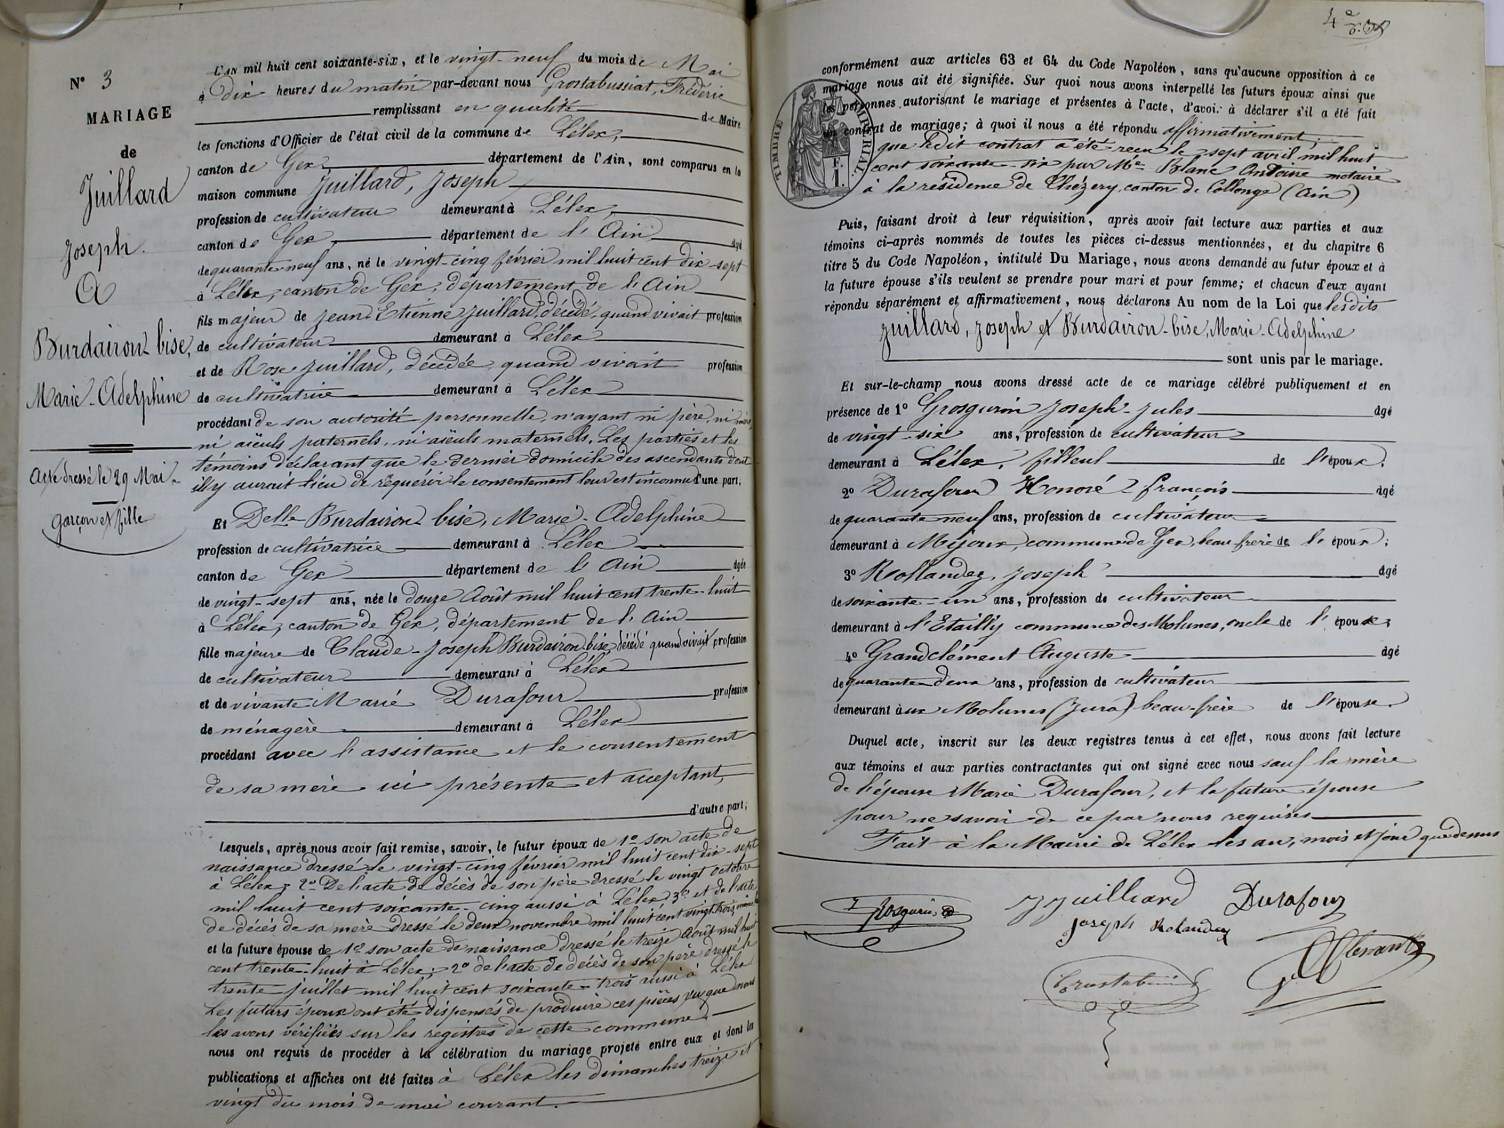 N° 3
MARIAGE
de
Juillard
Joseph
&
Burdairon-bise,
Marie-Adelphine
Acte dressé le 29 Mai
garçon et fille
L'AN mil huit cent soixante-six, et le vingt-neuf du mois de Mai
à dix heures du matin par-devant nous Grostabussiat, Frédéric
remplissant en qualité de Maire
les fonctions d'Officier de l'état civil de la commune de Lélex,
canton de Gex, département de l'Ain, sont comparus en la
maison commune Juillard, Joseph
profession de cultivateur demeurant à Lélex,
canton de Gex, département de l'Ain âgé
de quarante-neuf ans, né le vingt-cinq février mil huit cent dix-sept
à Lélex, canton de Gex, département de l'Ain
fils majeur de Jean-Etienne Juillard, décédé, quand vivait profession
de cultivateur demeurant à Lélex
et de Rose Juillard, décédée, quand vivait profession
de cultivatrice demeurant à Lélex
procédant de son autorité personnelle, n'ayant ni père, ni mère,
ni aïeuls paternels, ni aïeuls maternels. Les parties et les
témoins déclarant que le dernier domicile des ascendants dont
il y aurait lieu de requérir le consentement leur est inconnu d'une part.
Et Delle Burdairon-bise, Marie-Adelphine
profession de cultivatrice demeurant à Lélex
canton de Gex département de l'Ain âgée
de vingt-sept ans, née le douze Août mil huit cent trente-huit
à Lélex, canton de Gex, département de l'Ain
fille majeure de Claude-Joseph Burdairon-bise, décédé quand vivait profession
de cultivateur demeurant à Lélex
et de vivante Marie Durafour profession
de ménagère demeurant à Lélex
procédant avec l'assistance et le consentement
de sa mère ici présente et acceptant,
d'autre part;
Lesquels, après nous avoir fait remise, savoir, le futur époux de 1° son acte de
naissance dressé le vingt-cinq février mil huit cent dix-sept
à Lélex; 2° De l'acte de décès de son père dressé le vingt octobre
mil huit cent soixante-cinq aussi à Lélex; 3° et de l'acte
de décès de sa mère dressé le deux novembre mil huit cent vingt trois,
et la future épouse de 1° son acte de naissance dressé le treize Août mil huit
cent trente-huit à Lélex; 2° de l'acte de décès de son père dressé le
trente juillet mil huit cent soixante-trois aussi à Lélex
Les futurs époux ont été dispensés de produire ces pièces vu que nous
les avons vérifiées sur les registres de cette commune;
nous ont requis de procéder à la célébration du mariage projeté entre eux et dont les
publications et affiches ont été faites à Lélex les dimanches treize et
vingt du mois de mai courant.
4e
conformément aux articles 63 et 64 du Code Napoléon, sans qu'aucune opposition à ce
mariage nous ait été signifiée. Sur quoi nous avons interpellé les futurs époux ainsi que
les personnes autorisant le mariage et présentes à l'acte, d'avoir à déclarer s'il a été fait
un contrat de mariage; à quoi il nous a été répondu affirmativement;
que ledit contrat a été reçu le sept avril mil huit
cent soixante-six par Me Blanc Antoine notaire
à la résidence de Chézery, canton de Collonge (Ain)
TIMBRE IMPERIAL
F.
1.
Puis, faisant droit à leur réquisition, après avoir fait lecture aux parties et aux
témoins ci-après nommés de toutes les pièces ci-dessus mentionnées, et du chapitre 6
titre 5 du Code Napoléon, intitulé Du Mariage, nous avons demandé au futur époux et à
la future épouse s'ils veulent se prendre pour mari et pour femme; et chacun d'eux ayant
répondu séparément et affirmativement, nous déclarons Au nom de la Loi que lesdits
Juillard, Joseph et Burdairon-bise, Marie-Adelphine
sont unis par le mariage.
Et sur-le-champ nous avons dressé acte de ce mariage célébré publiquement et en
présence de 1° Grosgurin Joseph-Jules âgé
de vingt-six ans, profession de cultivateur
demeurant à Lélex, filleul de l'époux;
2° Durafour Honoré-François âgé
de quarante neuf ans, profession de cultivateur
demeurant à Mijoux, commune de Gex, beau frère de l'époux;
3° Rollandez, Joseph âgé
de soixante-un ans, profession de cultivateur
demeurant à l'Etailly commune des Molunes, oncle de l'épouse;
4° Grandclément Auguste âgé
de quarante-deux ans, profession de cultivateur
demeurant aux Molunes (Jura) beau-frère de l'épouse.
Duquel acte, inscrit sur les deux registres tenus à cet effet, nous avons fait lecture
aux témoins et aux parties contractantes qui ont signé avec nous sauf la mère
de l'épouse Marie Durafour, et la future épouse
pour ne savoir de ce par nous requises
Fait à la Mairie de Lélex les an, mois et jour que dessus
Grosgurin JJuilliard Durafour
Joseph Rolandez